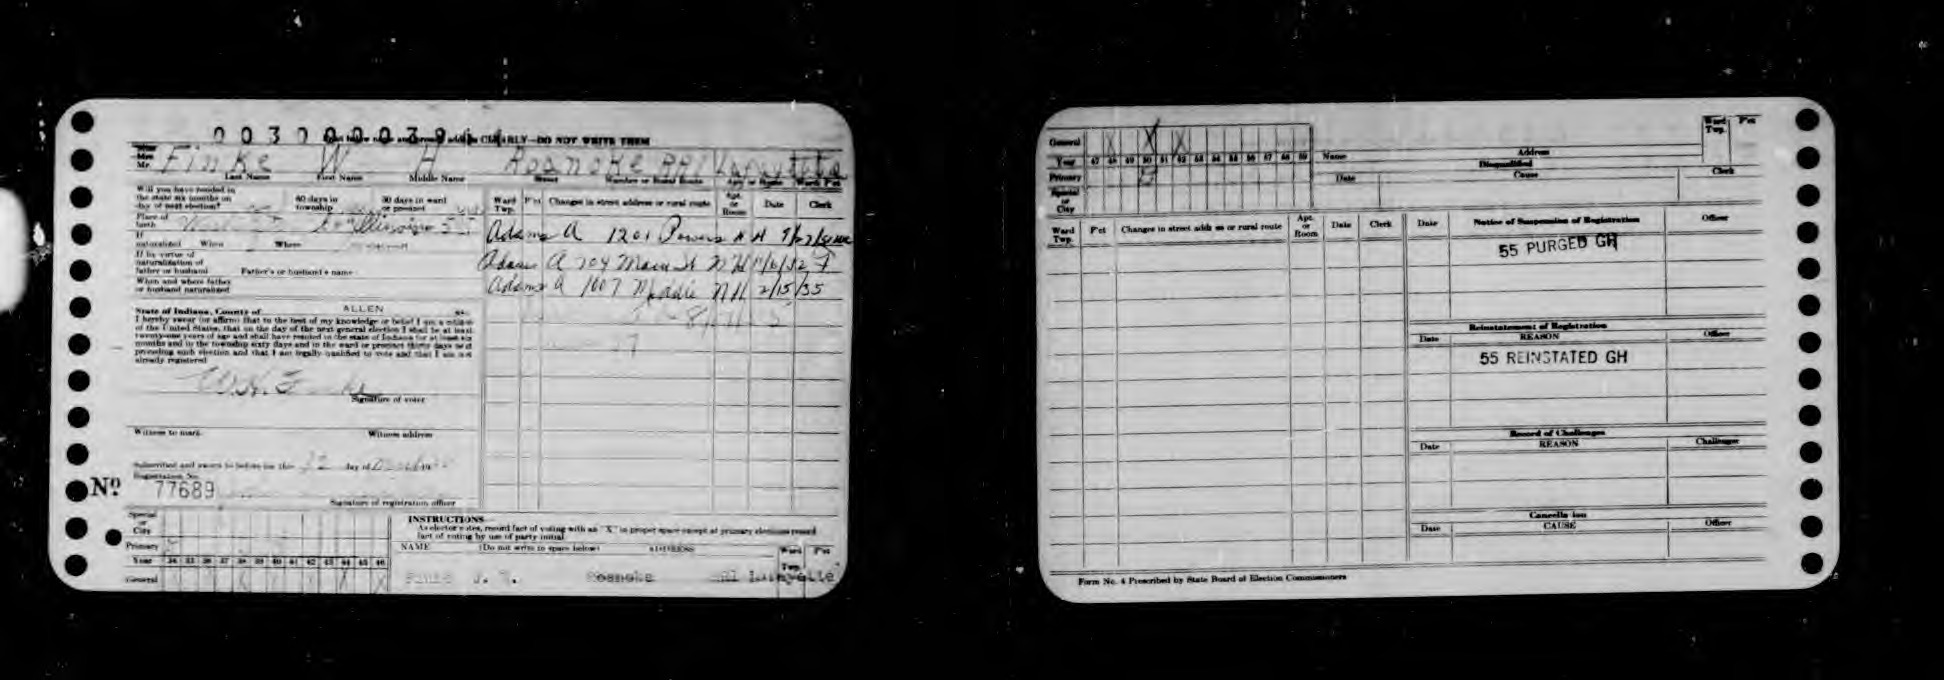 0 0 3 0 0 0 0 3 9
CLEARLY—DO NOT WRITE THEM
Mrs
Mr.
Finke W H Roanoke RR1 Lafayette
Last Name First Name Middle Name Street Number or Rural Route Apt. or Route Ward P'ct
Will you have resided in
the state six months on
day of next election?
60 days in
township
30 days in ward
or precinct
Place of
birth
Illinois
If
naturalized When Where
If by virtue of
naturalization of
father or husband Father's or husband's name
When and where father
or husband naturalized
Ward
Twp. P'ct Changes in street address or rural route Apt.
or
Room Date Clerk
Adams A 1201 Powers N H
Adams A 704 Main St N H 11/6/52 F
Adams A 1007 Middle N H 2/15/55
State of Indiana, County of ALLEN ss.
I hereby swear (or affirm) that to the best of my knowledge or belief I am a citizen
of the United States, that on the day of the next general election I shall be at least
twenty-one years of age and shall have resided in the state of Indiana for at least six
months and in the township sixty days and in the ward or precinct thirty days next
preceding such election and that I am legally qualified to vote and that I am not
already registered
W. H. Finke
Signature of voter
Witness to mark Witness address
Subscribed and sworn to before me this 12 day of
Registration No.
Nº 77689
Signature of registration officer
Special
or
City
Primary
Year 34 35 36 37 38 39 40 41 42 43 44 45 46
General X X X
INSTRUCTIONS
As elector votes, record fact of voting with an "X" in proper space except at primary elections record
fact of voting by use of party initial
NAME (Do not write in space below) ADDRESS Ward
Twp. P'ct
Roanoke RR1 Lafayette
General X X X
Year 47 48 49 50 51 52 53 54 55 56 57 58 59
Primary
Special
or
City
Name Address
Ward
Twp. P'ct
Disqualified
Date Cause Clerk
Ward
Twp. P'ct Changes in street address or rural route Apt.
or
Room Date Clerk
Date Notice of Suspension of Registration Officer
55 PURGED GH
Reinstatement of Registration
Date REASON Officer
55 REINSTATED GH
Record of Challenges
Date REASON Challenger
Cancellation
Date CAUSE Officer
Form No. 4 Prescribed by State Board of Election Commissioners